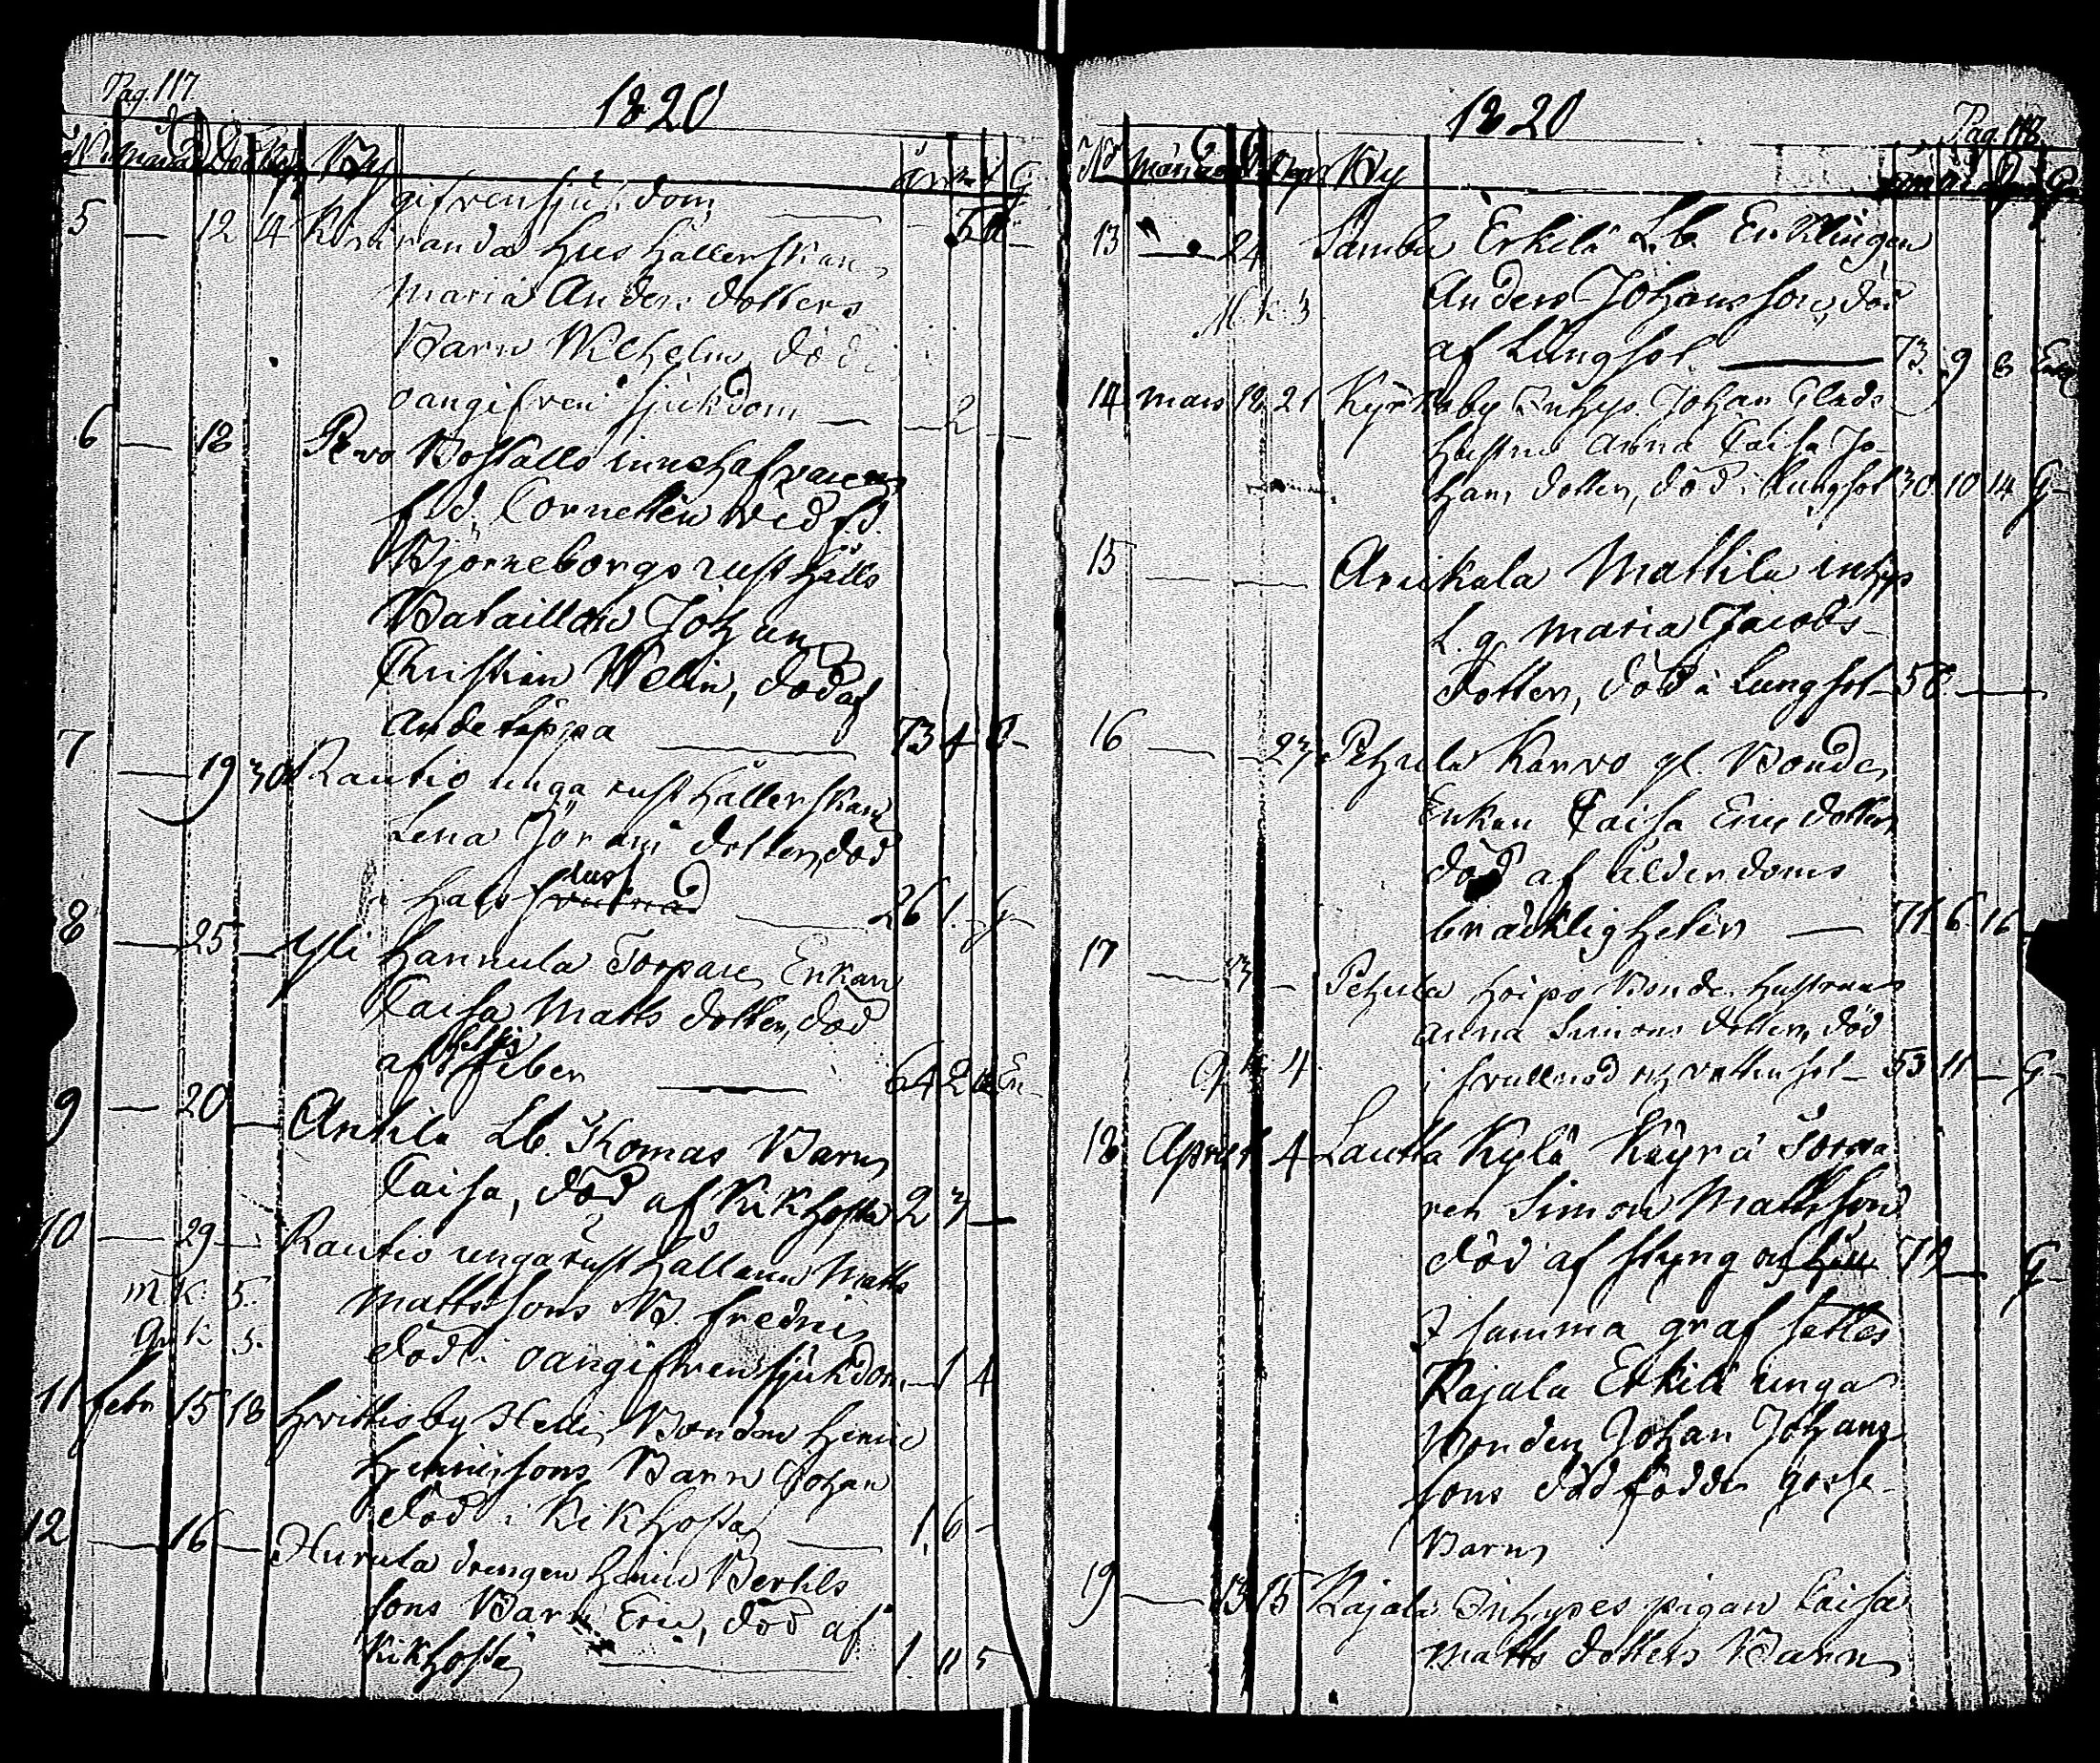 Pag. 117.
1820
By
gifven sjukdom
5 — 12 14 hushållerskan
Maria Anders dotters
Barn Wilhelm, död i
oangifven sjukdom — 2 —
6 — 18 Boställs innehafvaren
f.d. Cornetten wid f.d.
Björneborgs rusthålls
Bataillon Johan
Christian Welin, död af
andetäppa 73 4 8
7 — 19 30 Rautio unga rusthållerskan
Lena Jörans dotter, död
i halssvulnad lust 26 1
8 — 25 — Yli Hannula Torpare Enkan
Caisa Matts dotter, död
af hetsig feber 64 2 En
9 — 20 — Anttila Lb. Thomas Barn
Caisa, död af kikhosta 2 3 —
10 — 29 — Rautio unga rusthållaren Matts
M.K. 5. Mattssons B. Fredric
Qv.k 5. död i oangifven sjukdom — 1 4
11 Febr 15 18 Hvittisby Helli Bonden Henric
Henricssons Barn Johan
död i kikhosta 1 6 —
12 — 16 — Hurula drengen Henric Bertils
sons Barn Eric, död af
kikhosta 1 11 5
1820
Pag. 118.
No Månad By
13 — 24 Sambu Erkilä Lb. Enklingen
M.k. 3 Anders Johansson, död
af Lungsot 73 9 8 Enkl
14 Mars 18 21 Kyrkoby Inhys Johan Glads
hustru Anna Caisa Jo-
hans dotter, död i lungsot 30 10 14 G
15 — — Mattila inhys
L. q. Maria Jacobs
dotter, död i Lungsot 58 —
16 — 23 Pehula Karvo gl. Bonde
Enkan Caisa Erics dotter
död af ålderdoms
bräcklighet 71 6 16
17 — Pehula Hoipo Bonde hustrun
Anna Simons dotter, död
Q k 4 i svullnad och vattusot 53 11 — G
18 April 1 4 Lautta Kylä Käyrä Torpa
ren Simon Mattsson
död af styng och håll — G
I samma graf sattes
Rajala Erkilä unga
Bonden Johan Johans
sons dödfödde gosse-
Barn
19 — 13 15 Rajala Inhyses pigan Caisa
Matts dotters Barn